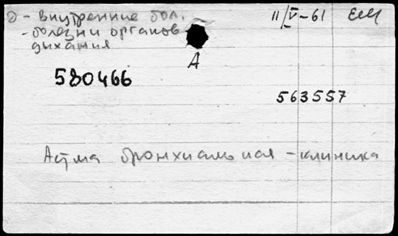 - внутренние бол. II/V-61
- болезни органов
дыхания
А
580466
563557
Астма бронхиальная - клиника